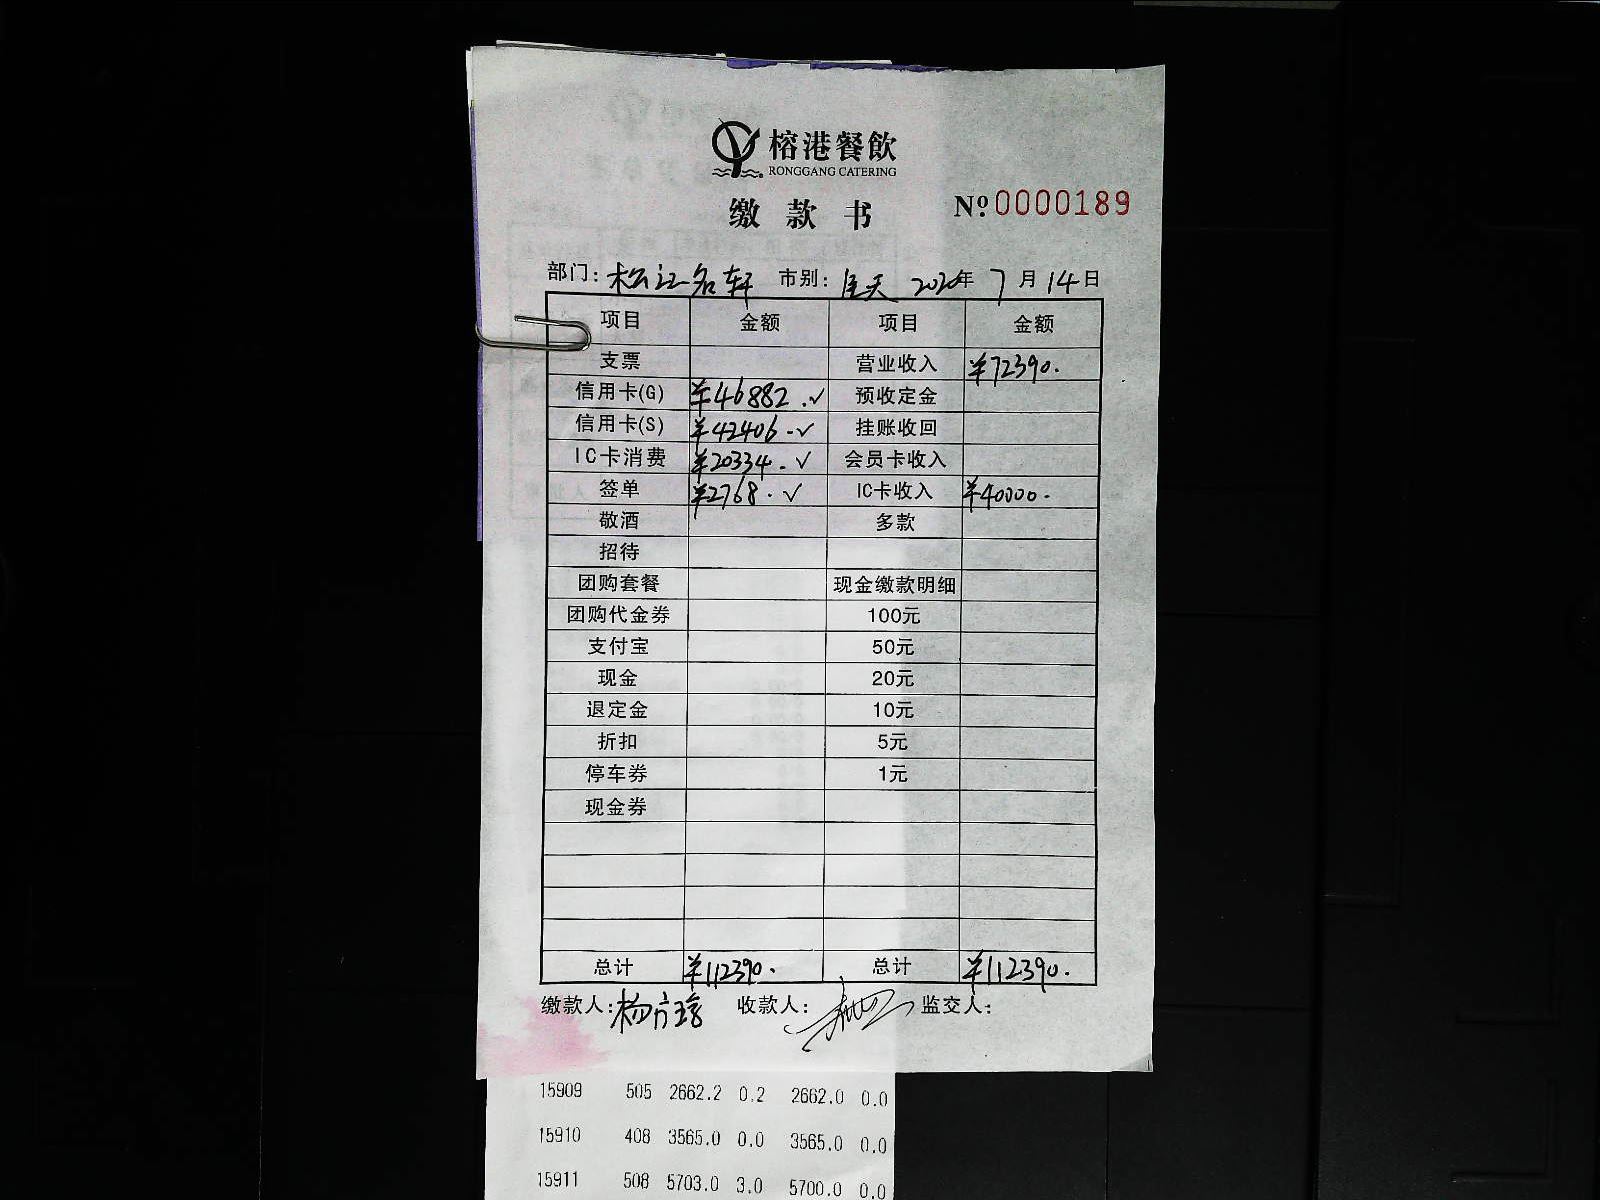 榕港餐飲
RONGGANG CATERING
缴款书
№0000189
部门: 松江名轩 市别: 全天 2020年 7月14日
项目 金额 项目 金额
支票 营业收入 ¥72390.
信用卡(G) ¥46882.✓ 预收定金
信用卡(S) ¥42406.✓ 挂账收回
IC卡消费 ¥20334.✓ 会员卡收入
签单 ¥2768.✓ IC卡收入 ¥40000.
敬酒 多款
招待
团购套餐 现金缴款明细
团购代金券 100元
支付宝 50元
现金 20元
退定金 10元
折扣 5元
停车券 1元
现金券
总计 ¥112390. 总计 ¥112390.
缴款人: 收款人: 监交人:
15909 505 2662.2 0.2 2662.0 0.0
15910 408 3565.0 0.0 3565.0 0.0
15911 508 5703.0 3.0 5700.0 0.0